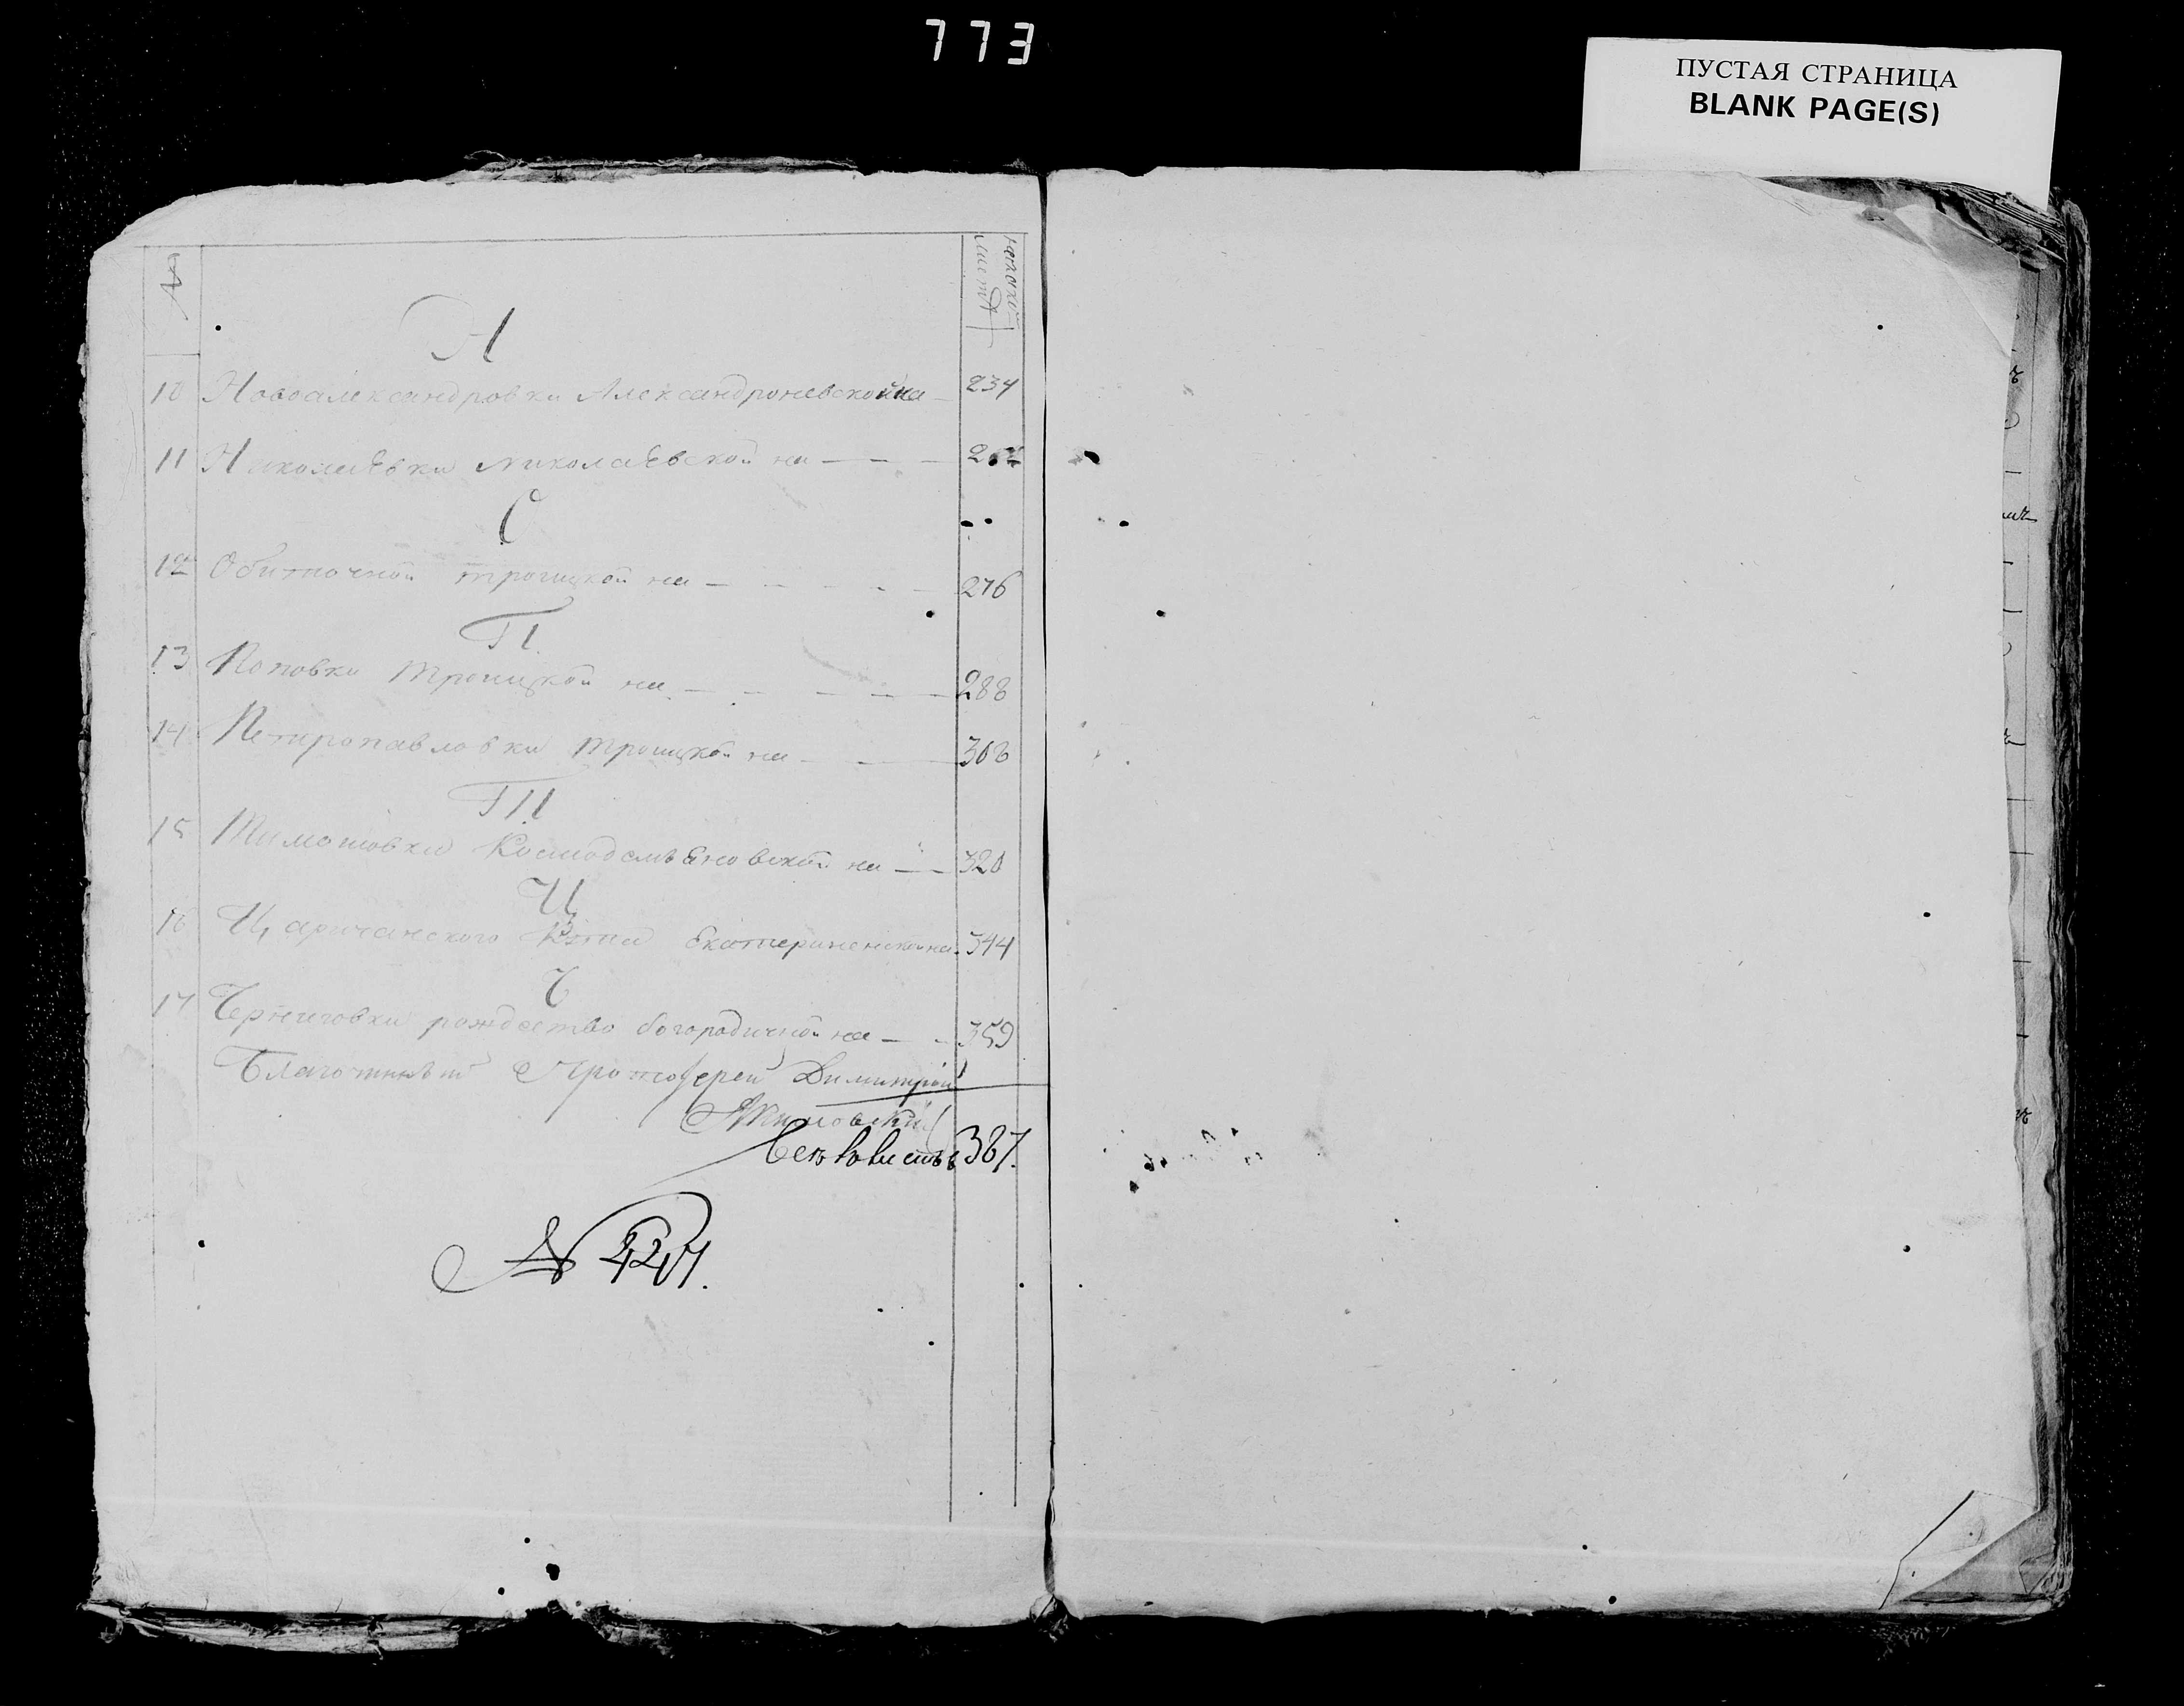 773
ПУСТАЯ СТРАНИЦА
BLANK PAGE(S)
№
Н
10 Новоалександровки Александроневской на — 234
11 Николаевки Николаевской на — — —
О
12 Обиточной троицкой на — — — — — 276
П
13 Поповки троицкой на — — — — — 288
14 Петропавловки троицкой на — — 308
Т
15 Тимошовки Космодемьяновской на — — 320
Ц
16 Царичанского Екатериненской на 344
Ч
17 Черниговки рождество богородичной на — — 359
Протоиерей Димитрий
387.
№